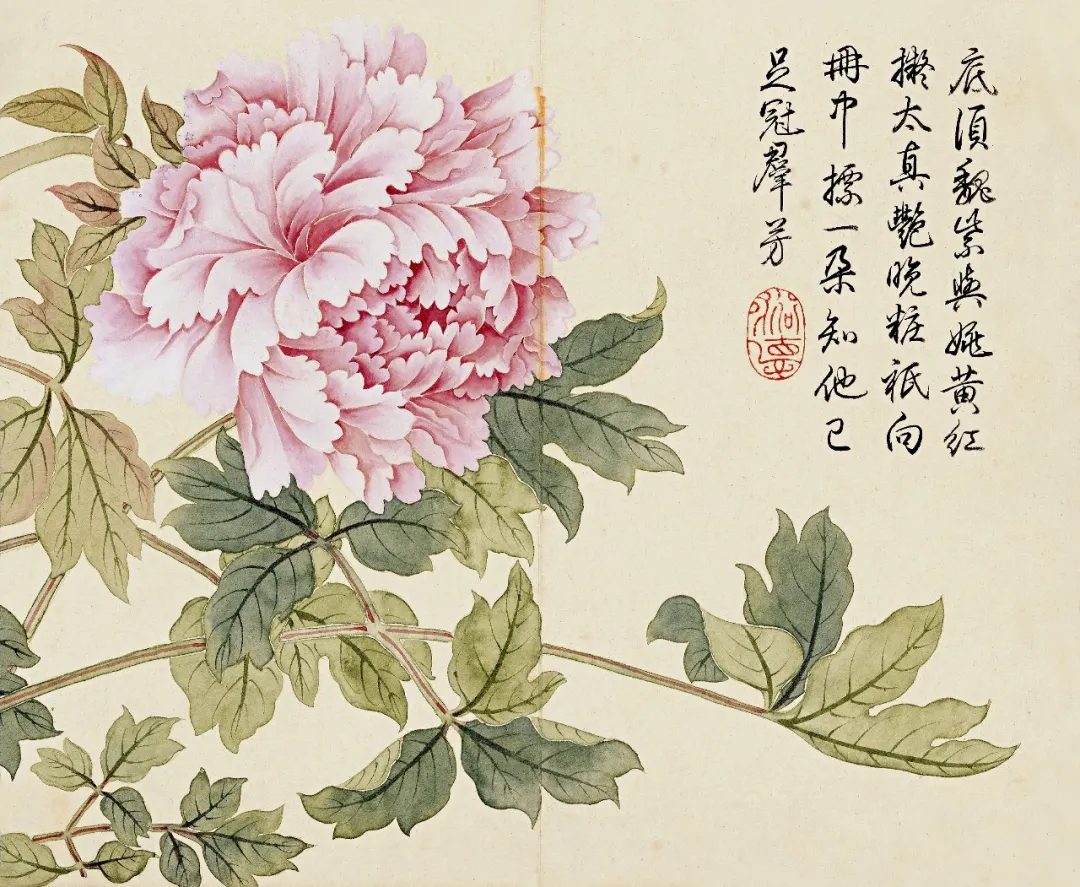 底須魏紫與姚黃紅
擬太真艷晚粧祇向
冊中標一朵知他已
足冠羣芳